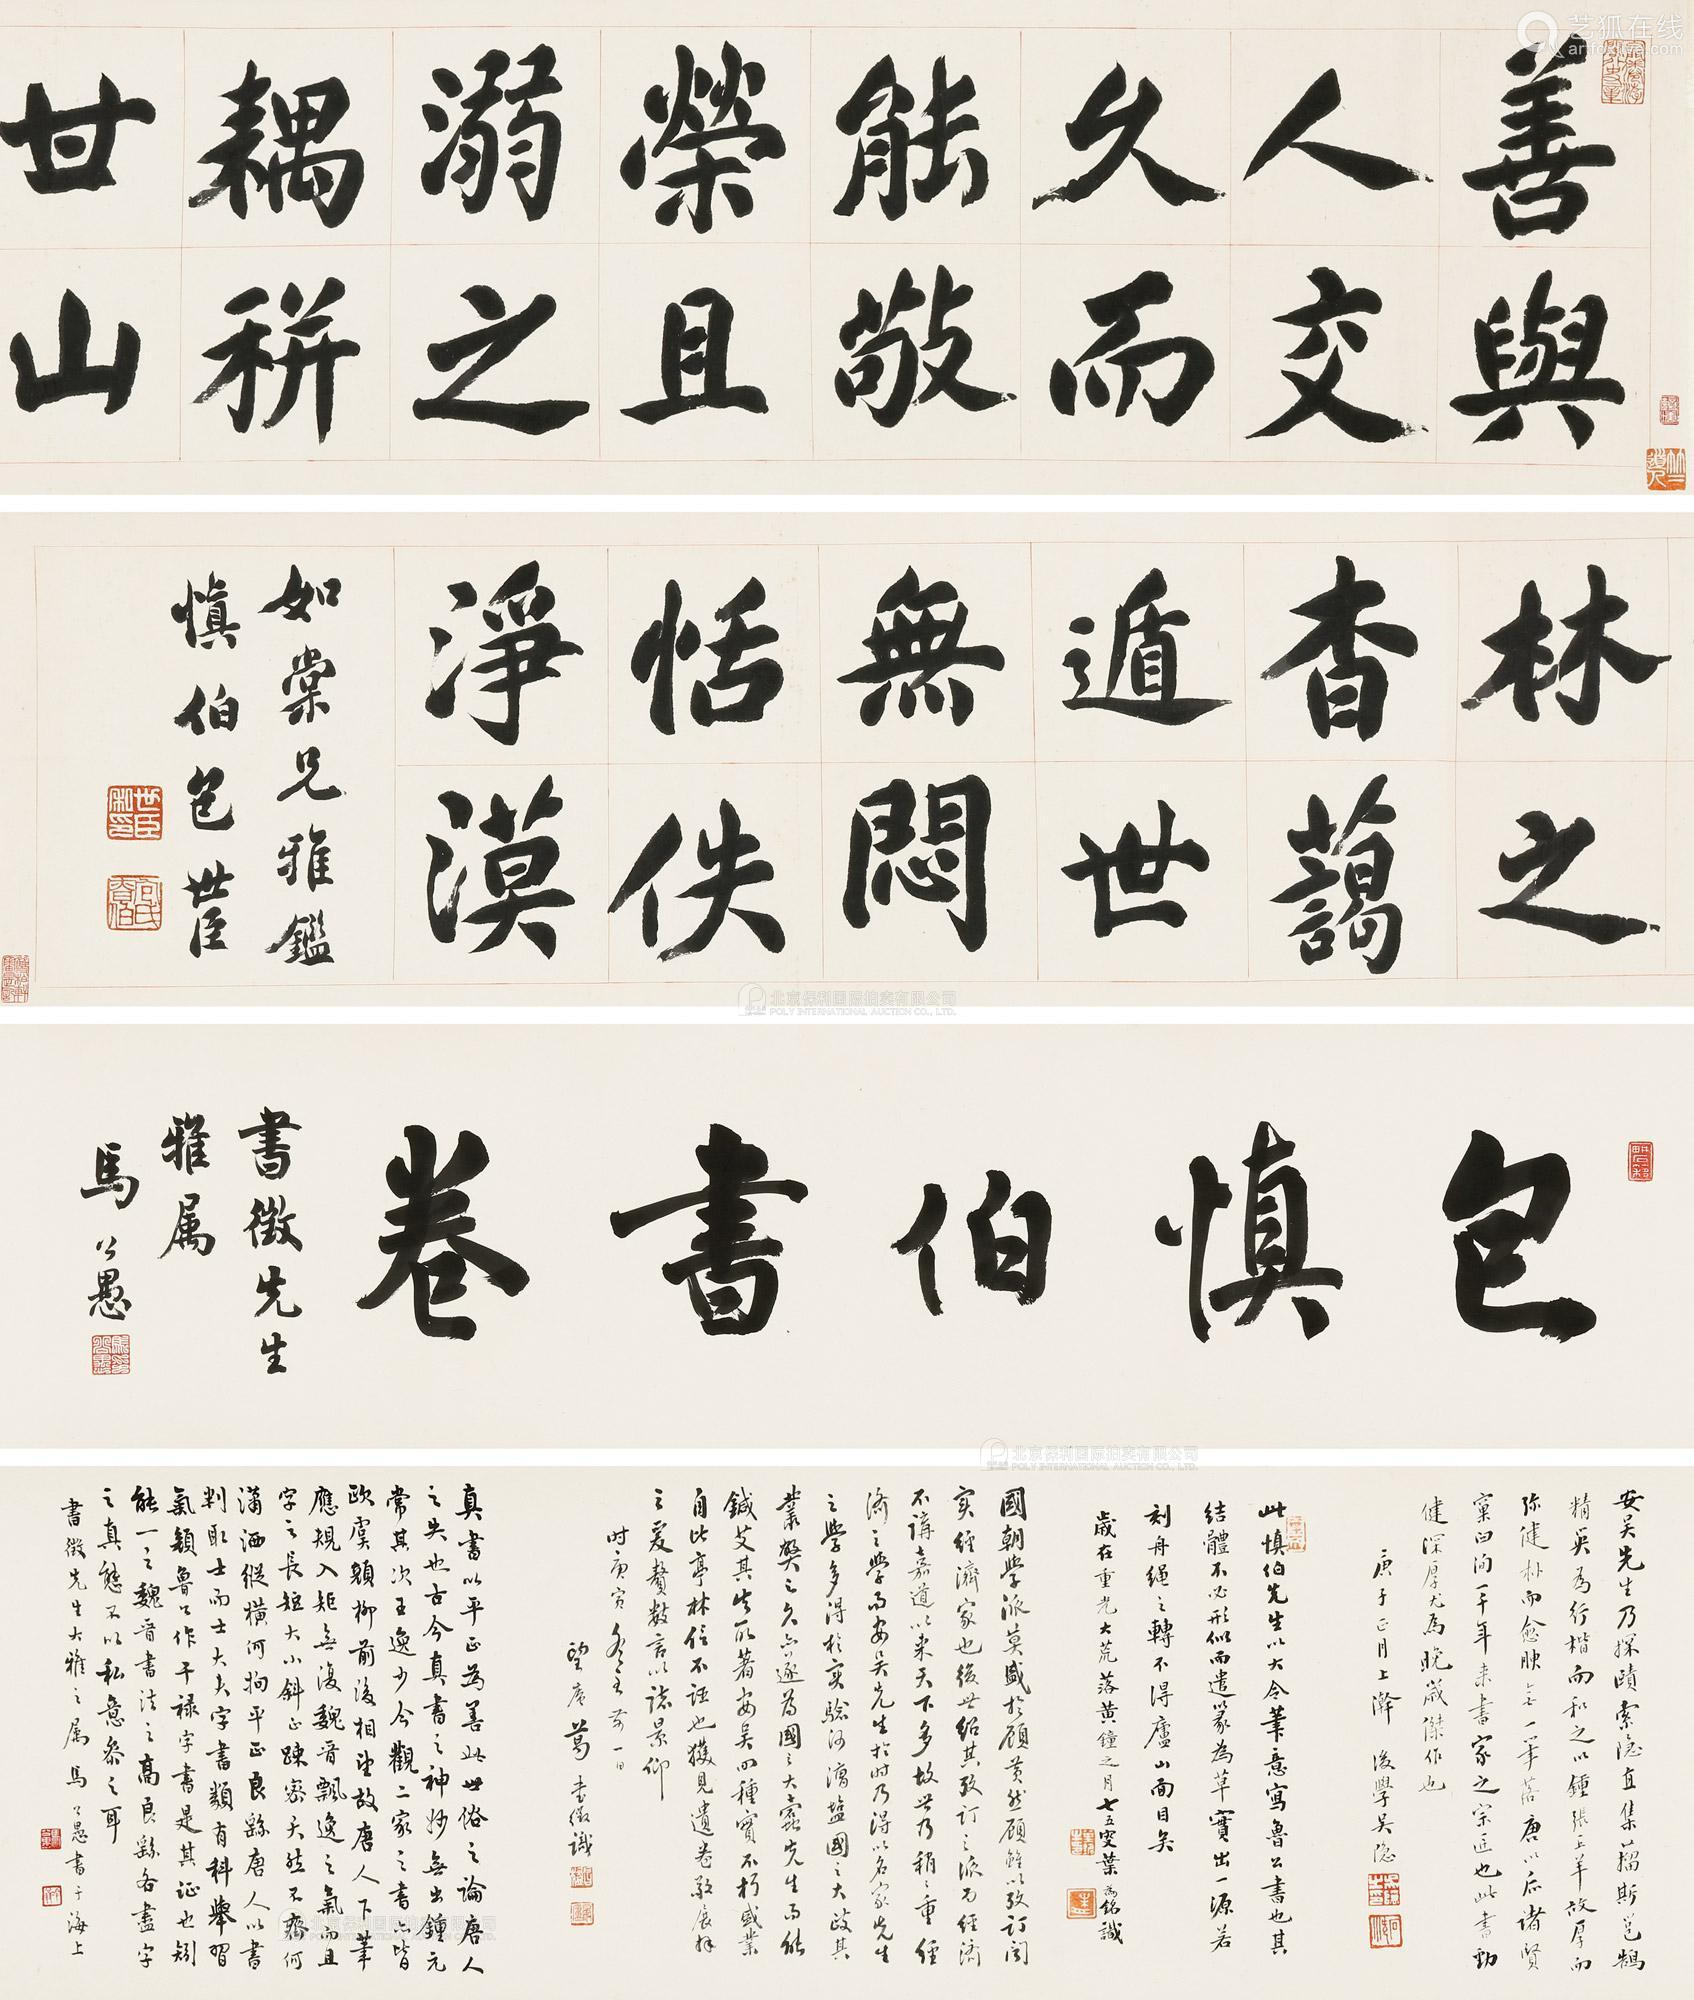 善與
人交
久而
能敬
榮且
溺之
耦耕
甘山
林之
杳藹
遁世
無悶
恬佚
淨漠
如棠兄雅鑑
慎伯包世臣
包慎伯書卷
書徵先生
雅属
馬公愚
安吴先生乃探賾索隐直集籀斯邕鵠
精英為行楷而和之以鍾張二羊故厚而
弥健朴而愈腴無一筆落唐以后諸賢
窠臼洵一千年来書家之宗匠也此書勁
健深厚尤為晚歲傑作也
庚子正月上澣 後學吴隐
此慎伯先生以大令筆意寫魯公書也其
結體不必形似而遣篆為草實出一源若
刻舟繩之轉不得廬山面目矣
歲在重光大荒落黄鐘之月七五叟葉為銘識
國朝學派莫盛於顧黄然顧雖以攷訂聞
实經濟家也後世紹其攷訂之派而經濟
不講嘉道以来天下多故世乃稍稍重經
济之學而安吴先生於时乃得以名家先生
之學多得於实驗河漕塩國之大政其
叢弊之久亦遂為國之大蠹先生而能
鍼艾其失所著安吴四種寳不朽盛業
自比亭林信不誣也獲見遺卷敬展拜
之爰贅数言以誌景仰
时庚寅冬至前一日
望唐葛書徵識
真書以平正為善此世俗之論唐人
之失也古今真書之神妙無出鍾元
常其次王逸少今觀二家之書亦皆
潇洒縱横何拘平正良繇唐人以書
判取士而士大夫字書類有科舉習
氣顏魯公作干禄字書是其证也矧
歐虞顏柳前後相望故唐人下筆
應規入矩無復魏晋飄逸之氣而且
字之長短大小斜正疎密天然不齊何
能一之魏晋書法之高良繇各盡字
之真態不以私意参之耳
書徵先生大雅之属 馬公愚書于海上
艺狐在线
artfoxlive.com
北京保利国际拍卖有限公司
POLY INTERNATIONAL AUCTION CO., LTD.